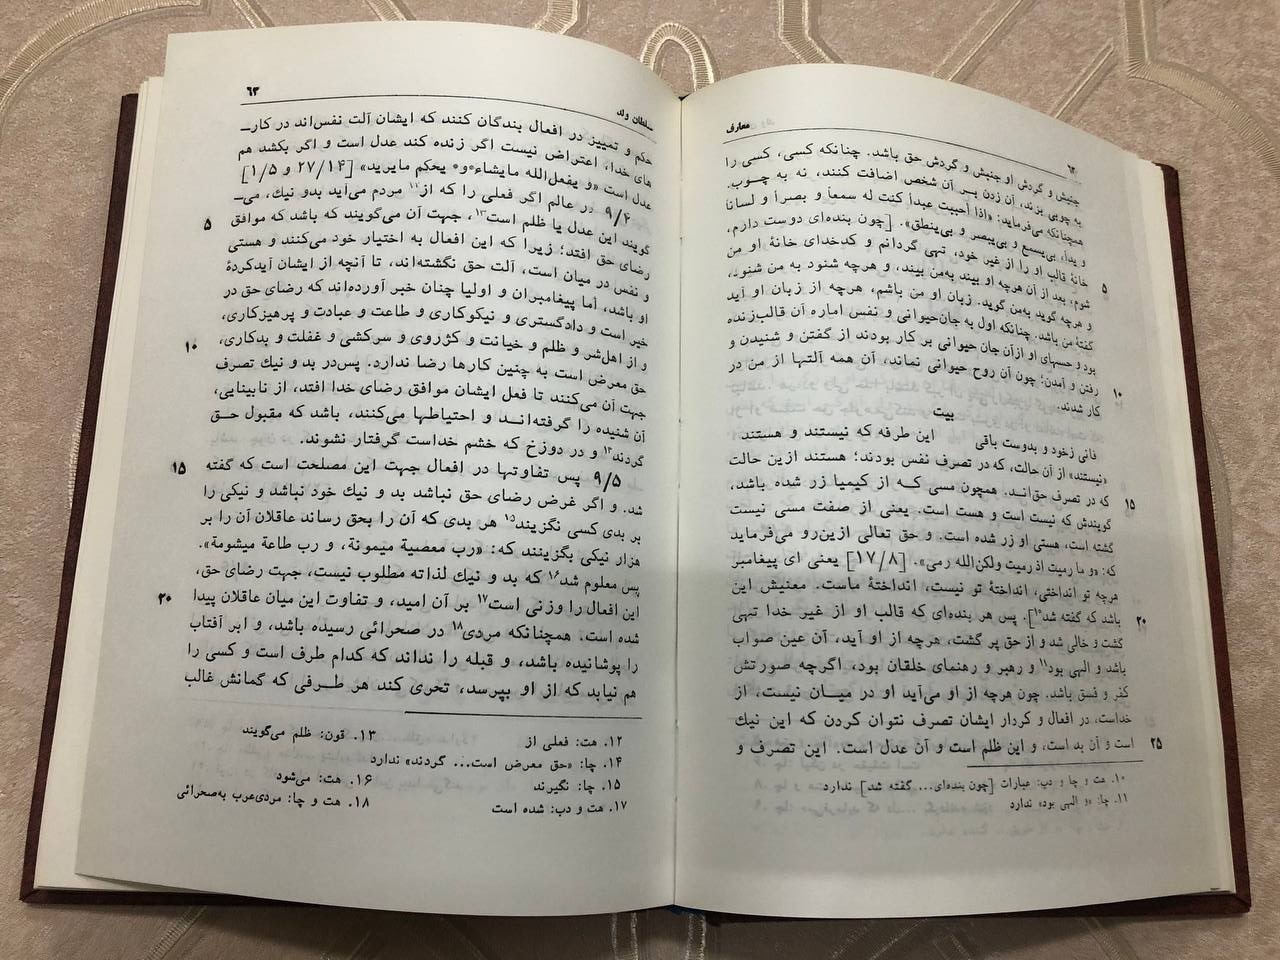 معارف
جنبش و گردش او جنبش و گردش حق باشد. چنانکه کسی، کسی را
به چوبی بزند، آن زدن بر آن شخص اضافت کنند، نه به چوب.
همچنانکه می‌فرماید: «اذا أحببت عبداً کنت له سمعاً و بصراً و لساناً
و یداً، بی‌یسمع و بی‌یبصر و بی‌ینطق». [چون بنده‌ای دوست دارم،
خانهٔ قالب او را از غیر خود، تهی گردانم و کدخدای خانهٔ او من
۵ شوم، بعد از آن هرچه او بیند به‌من بیند، و هرچه شنود به من شنود،
و هرچه گوید به‌من گوید. زبان او من باشم، هرچه از زبان او آید
گفتهٔ من باشد. چنانکه اول به جان‌حیوانی و نفس اماره آن قالب‌زنده
بود و حسهای او ازآن جان حیوانی بر کار بودند از گفتن و شنیدن و
رفتن و آمدن؛ چون آن روح حیوانی نماند، آن همه آلتها از من در
۱۰ کار شدند.
بیت
فانی زخود و بدوست باقی این طرفه که نیستند و هستند
«نیستند» از آن حالت، که در تصرف نفس بودند؛ هستند ازین حالت
که در تصرف حق‌اند. همچون مسی که از کیمیا زر شده باشد،
۱۵ گویندش که نیست است و هست است. یعنی از صفت مسی نیست
گشته است، هستی او زر شده است. و حق تعالی ازین‌رو می‌فرماید
که: «و ما رمیت اذ رمیت ولکن‌الله رمی». [۱۷/۸] یعنی ای پیغامبر
هرچه تو انداختی، انداختهٔ تو نیست، انداختهٔ ماست. معنیش این
باشد که گفته شد۱۰]. پس هر بنده‌ای که قالب او از غیر خدا تهی
۲۰ گشت و خالی شد و از حق پر گشت، هرچه از او آید، آن عین صواب
باشد و الهی بود۱۱ و رهبر و رهنمای خلقان بود، اگرچه صورتش
کفر و فسق باشد. چون هرچه از او می‌آید او در میان نیست، از
خداست، در افعال و کردار ایشان تصرف نتوان کردن که این نیک
۲۵ است و آن بد است، و این ظلم است و آن عدل است. این تصرف و
۱۰. هت و چا و دپ: عبارات [چون بنده‌ای... گفته شد] ندارد
۱۱. چا: «و الهی بود» ندارد
سلطان ولد ۶۳
حکم و تمییز در افعال بندگان کنند که ایشان آلت نفس‌اند در کار–
های خدا، اعتراض نیست اگر زنده کند عدل است و اگر بکشد هم
عدل است «و یفعل‌الله مایشاء»و« یحکم مایرید» [۲۷/۱۴ و ۱/۵]
۹/۴ در عالم اگر فعلی را که از۱۲ مردم می‌آید بدو نیك، می–
۵ گویند این عدل یا ظلم است۱۳، جهت آن می‌گویند که باشد که موافق
رضای حق افتد؛ زیرا که این افعال به اختیار خود می‌کنند و هستی
و نفس در میان است، آلت حق نگشته‌اند، تا آنچه از ایشان آیدکردهٔ
او باشد، اما پیغامبران و اولیا چنان خبر آورده‌اند که رضای حق در
خیر است و دادگستری و نیکوکاری و طاعت و عبادت و پرهیزکاری،
۱۰ و از اهل‌شر و ظلم و خیانت و کژروی و سرکشی و غفلت و بدکاری،
حق معرض است به چنین کارها رضا ندارد. پس‌در بد و نیك تصرف
جهت آن می‌کنند تا فعل ایشان موافق رضای خدا افتد، از نابینایی،
آن شنیده را گرفته‌انـد و احتیاطها می‌کنند، باشد که مقبول حـق
گردند۱۴ و در دوزخ که خشم خداست گرفتار نشوند.
۱۵ ۹/۵ پس تفاوتها در افعال جهت این مصلحت است که گفته
شد. و اگر غرض رضای حق نباشد بد و نیك خود نباشد و نیکی را
بر بدی کسی نگزیند۱۵ هر بدی که آن را بحق رساند عاقلان آن را بر
هزار نیکی بگزینند که: «رب معصیة میمونة، و رب طاعة میشومة».
پس معلوم شد۱۶ که بد و نیك لذاته مطلوب نیست، جهت رضای حق،
۲۰ این افعال را وزنی است۱۷ بر آن امید، و تفاوت این میان عاقلان پیدا
شده است. همچنانکه مردی۱۸ در صحرائی رسیده باشد، و ابر آفتاب
را پوشانیده باشد، و قبله را نداند که کدام طرف است و کسی را
هم نیابد که از او بپرسد، تحری کند هر طـرفی که گمانش غالب
۱۲. هت: فعلی از ۱۳. قون: ظلم می‌گویند
۱۴. چا: «حق معرض است... گردند» ندارد
۱۵. چا: نگیرند ۱۶. هت: می‌شود
۱۷. هت و دپ: شده است ۱۸. هت و چا: مردی‌عرب به‌صحرائی